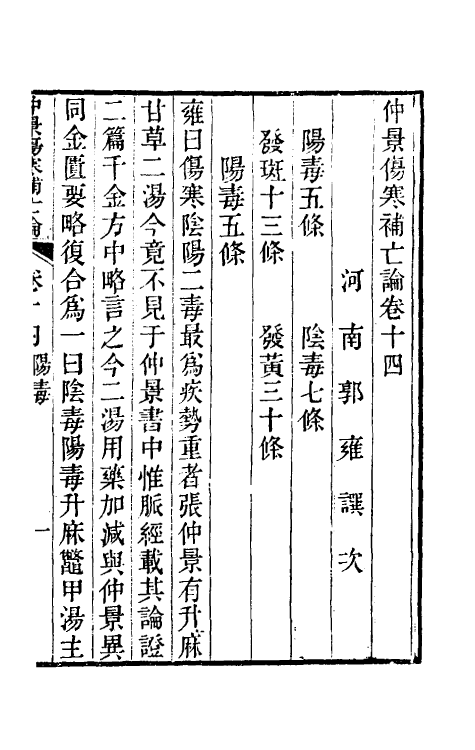 仲景傷寒補亡論卷十四
河南郭雍譔次
陽毒五條　陰毒七條
發斑十三條　發黃三十條
陽毒五條
雍曰傷寒陰陽二毒最爲疾勢重者張仲景有升麻
甘草二湯今竟不見于仲景書中惟脈經載其論證
二篇千金方中略言之今二湯用藥加減與仲景異
同金匱要略復合爲一曰陰毒陽毒升麻鼈甲湯主
仲景傷寒補亡論　卷十四　陽毒　一